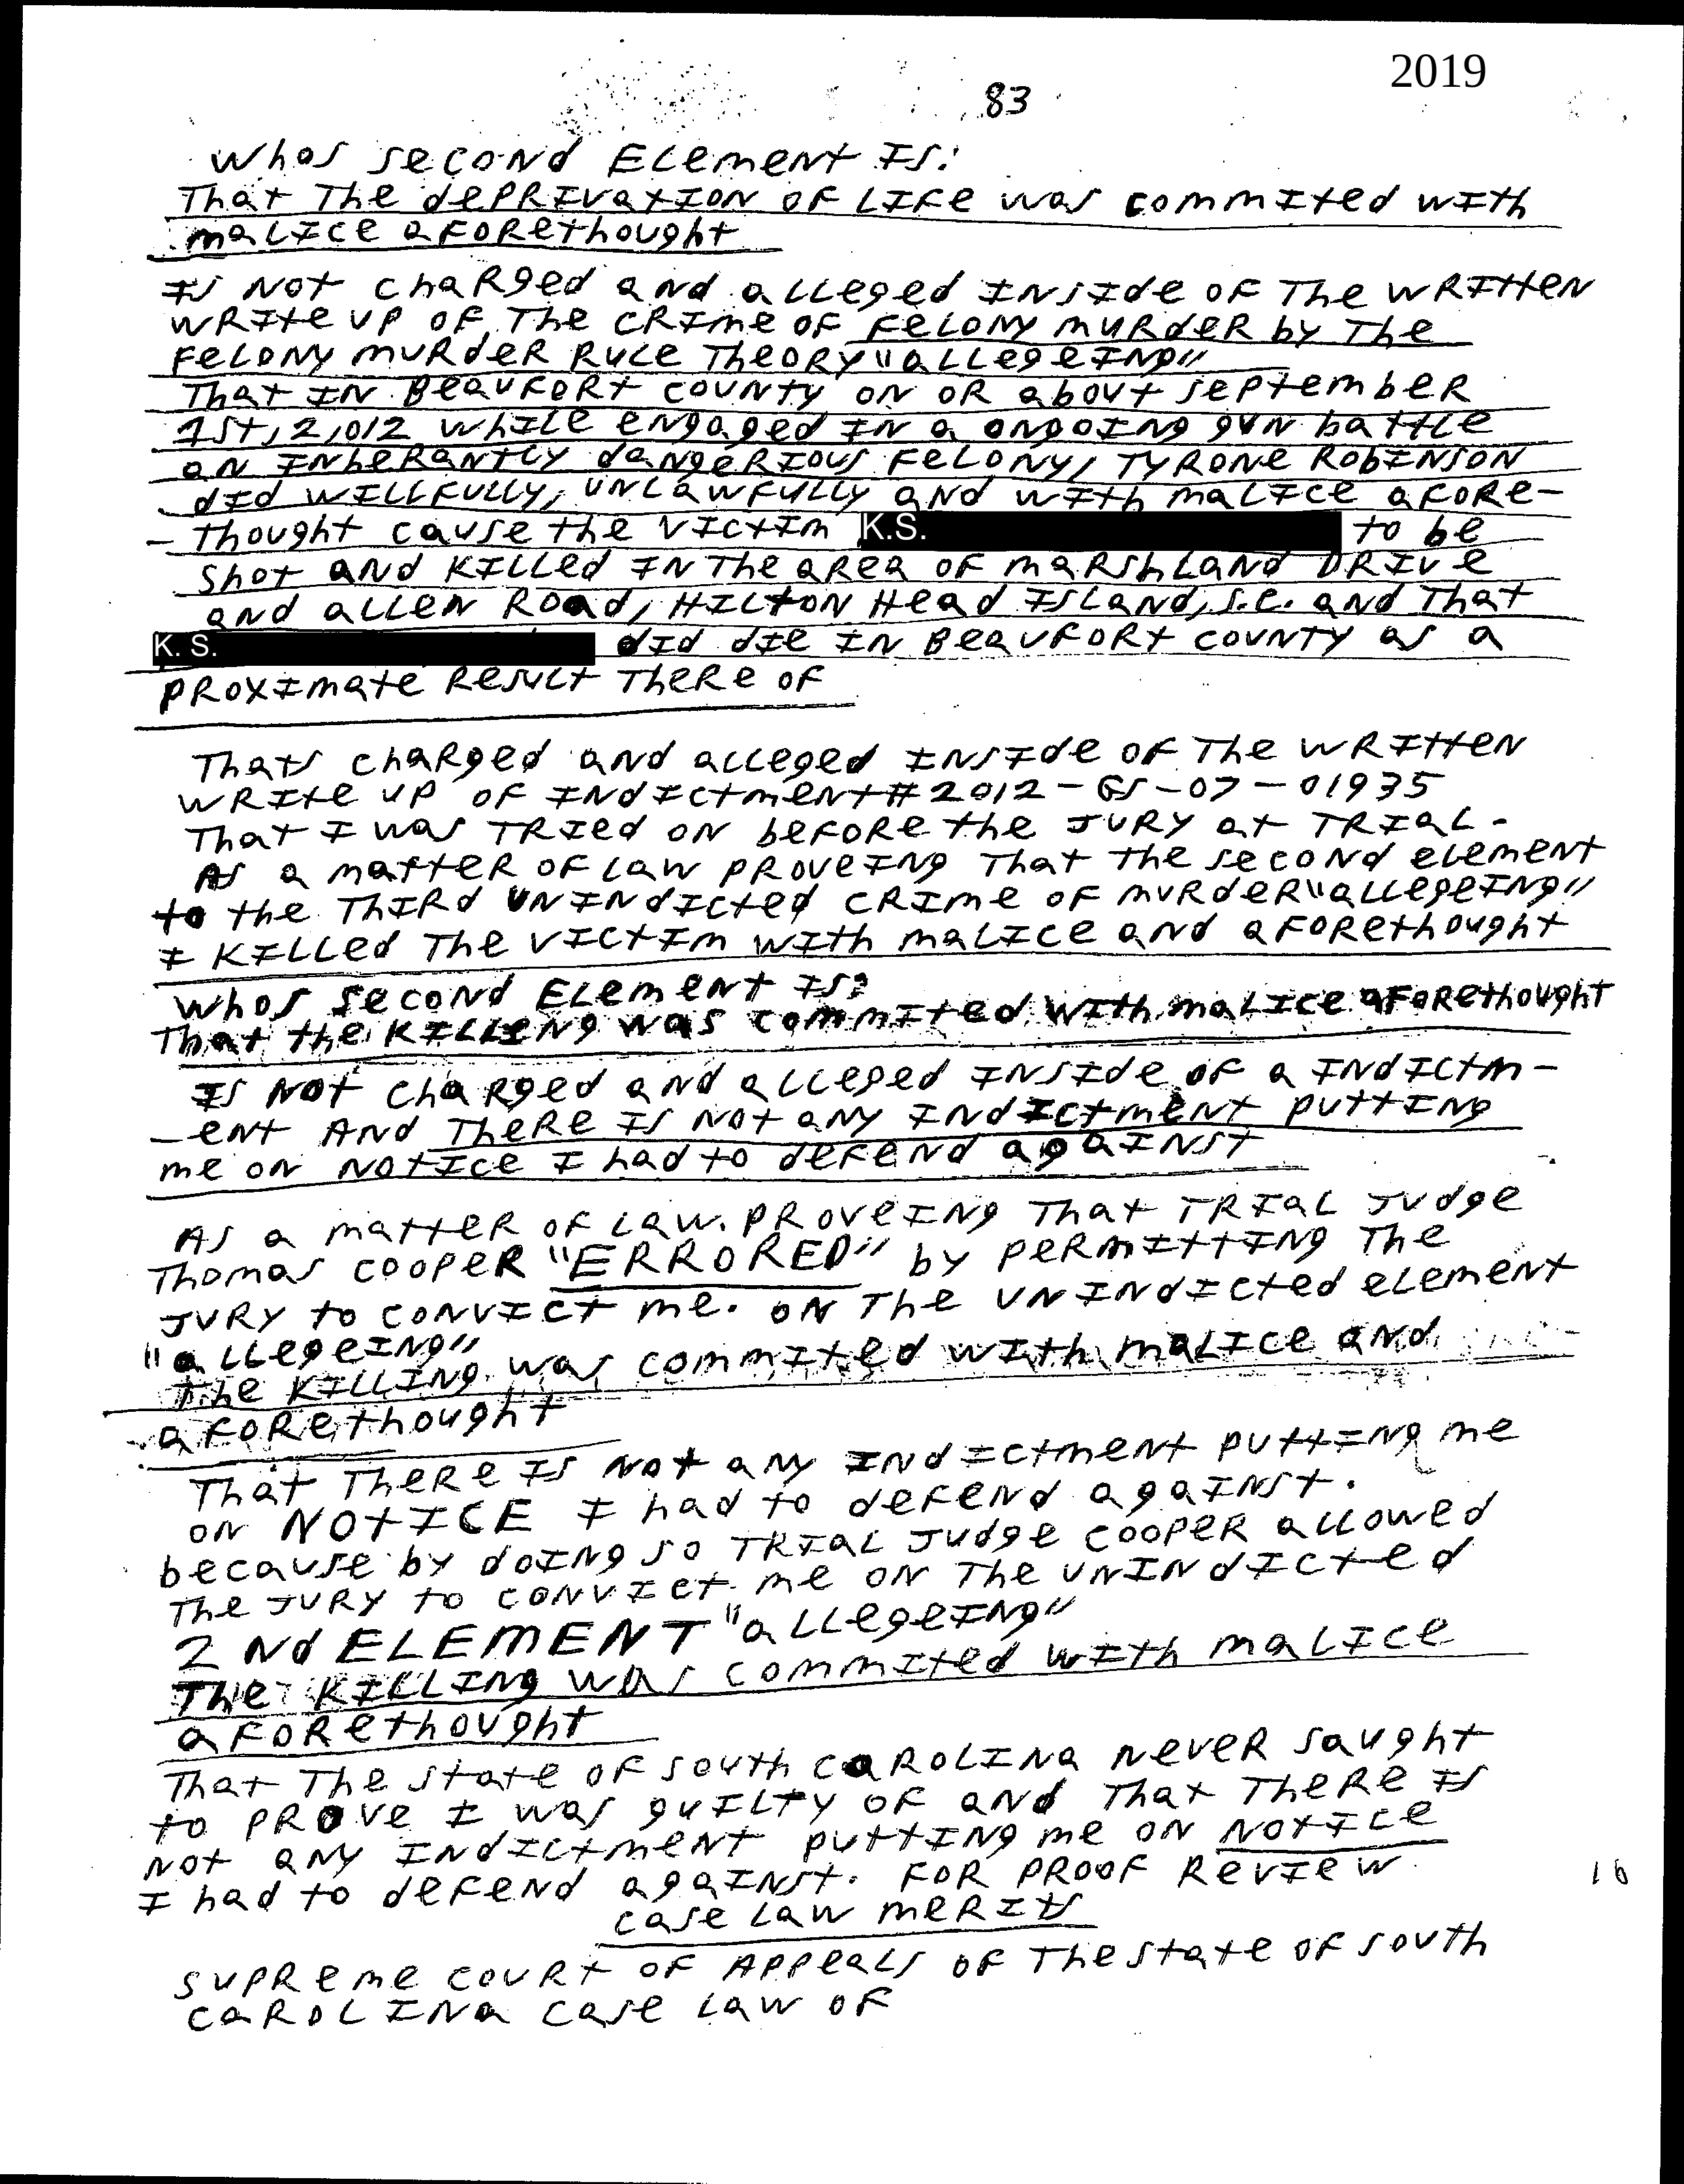 2019
83
Whos second Element Is:
That The deprivation of Life was commited with
malice aforethought
Is not charged and alleged inside of The written
write up of The crime of Felony murder by The
Felony murder Rule Theory "allegeing"
That in Beaufort county on or about september
1st, 2,012 while engaged in a ongoing gun battle
an inherantly dangerious felony, Tyrone Robinson
did willfully, unlawfully and with malice afore-
- Thought cause the victim K.S. to be
shot and killed in the area of marshland Drive
and allen Road, Hilton Head Island, S.C. and That
K. S. did die in Beaufort county as a
proximate Result There of
Thats charged and alleged inside of The written
write up of indictment # 2012-GS-07-01935
That I was Tried on before the Jury at Trial.
As a matter of Law proveing That the second element
to the Third unindicted crime of murder "allegeing"
I killed The victim with malice and aforethought
Whos second Element Is:
That the killing was commited with malice aforethought
Is not charged and alleged inside of a indictm-
-ent And There is not any indictment putting
me on notice I had to defend against
As a matter of Law. proveing That Trial Judge
Thomas Cooper "ERRORED" by permitting The
Jury to convict me. on The unindicted element
"allegeing"
The killing was commited with malice and
aforethought
That There is not any indictment putting me
on NOTICE I had to defend against.
because by doing so Trial Judge Cooper allowed
The Jury to convict me on The unindicted
2 Nd ELEMENT "allegeing"
The killing was commited with malice
aforethought
That The state of South Carolina never saught
to prove I was guilty of and That There is
not any indictment putting me on notice
I had to defend against. For proof Review
16
case Law merits
supreme court of Appeals of The state of south
carolina case Law of